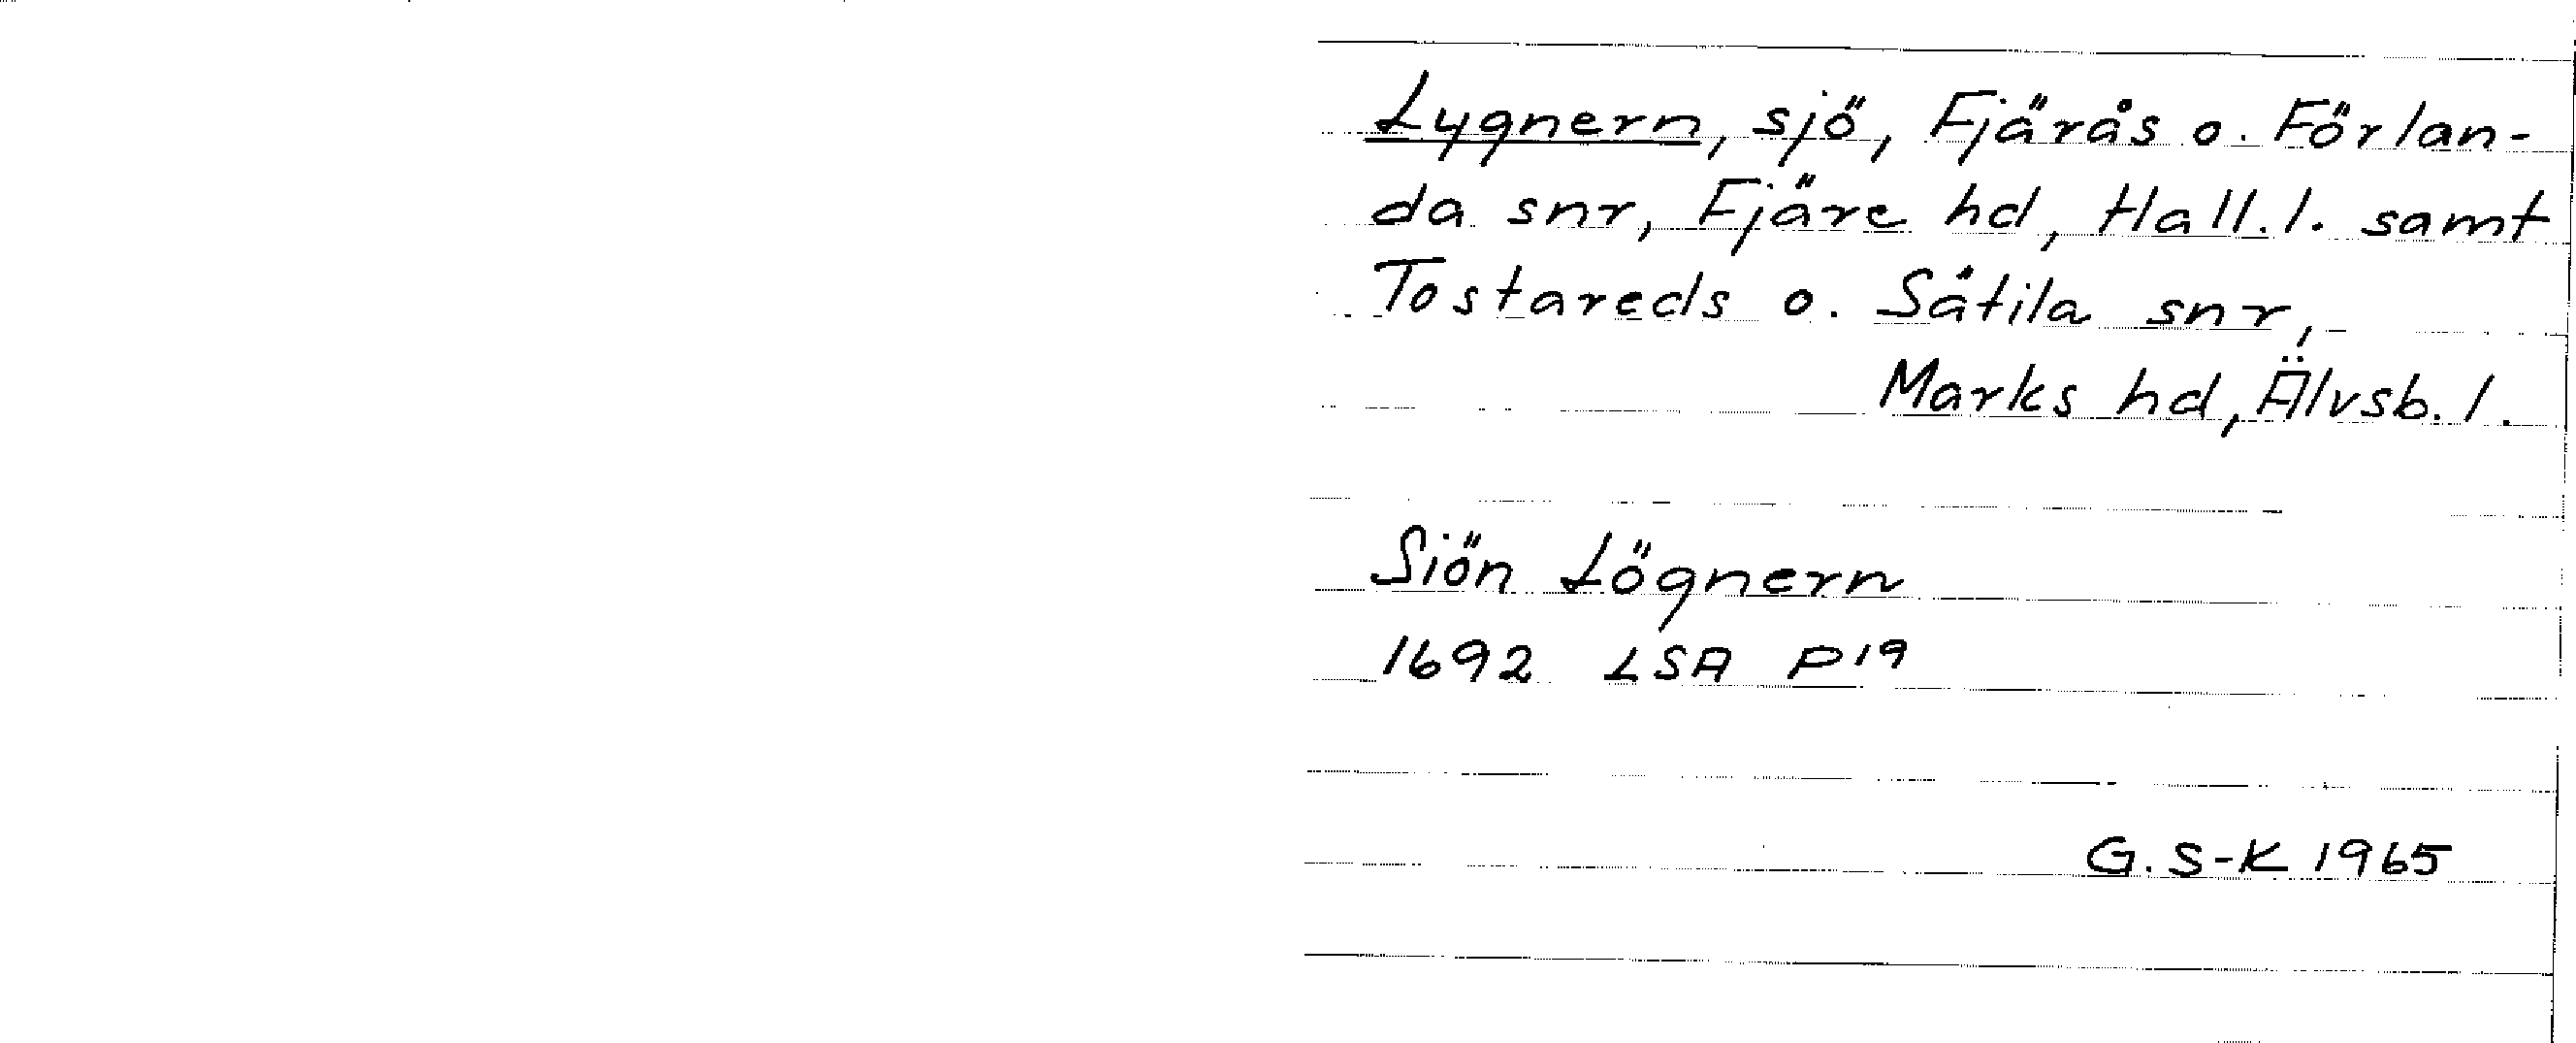 Lygnern, sjö, Fjärås o. Förlan-
da snr, Fjäre hd, Hall.l. samt
Tostareds o. Sätila snr,
Marks hd, Älvsb. l.
Siön Lögnern
1692 LSA P19
G. S-K 1965